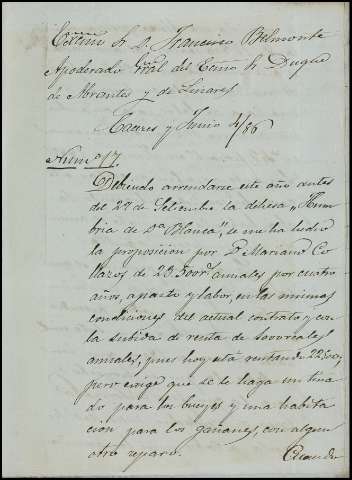 Excmo Sr. D. Francisco Belmonte
Apoderado Gral del Excmo Sr Duque
de Abrantes y de Linares
Cáceres y Junio 4/86
Num.º 17
Debiendo arrendarse este año antes
del 29 de Setiembre la dehesa "Hum
bria de Dª Blanca", se me ha hecho
la proposicion por D. Mariano Co
llazos de 23.500 rs. anuales por cuatro
años, a pasto y labor, en las mismas
condiciones del actual contrato y con
la subida de renta de 1000 reales
anuales, pues hoy está rentando 22.500,
pero exige que se le haga un tina
do para los bueyes y una habita
cion para los gañanes, con algun
otro reparo.
Cuando